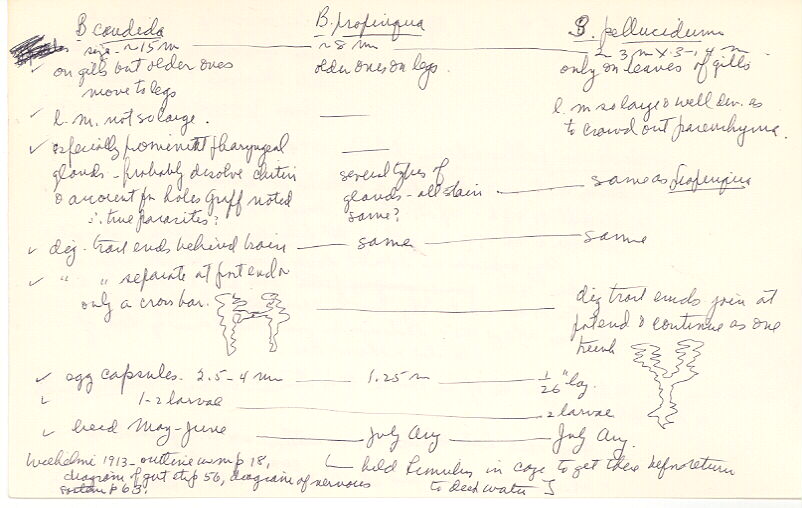 B candeda B. propinqua B. pellucidum
size - ~15 m ~8 m 2-3 m x .3-1.4 m
✓ on gills but older ones older ones on legs. only on leaves of gills
move to legs
✓ l. m. not so large. — l. m so large & well dev. as
to crowd out parenchyma.
✓ especially prominent pharyngeal —
glands - probably dissolve chitin several types of
& account for holes Graff noted glands - all stain — same as propinqua
∴ true parasites? same?
✓ dig. tract ends behind brain — same — same
✓ " " separate at post end or
only a cross bar. — dig tract ends join at
post end & continue as one
trunk
✓ egg capsules 2.5-4 mm — 1.25 m — 1/26" lg.
✓ 1-2 larvae — 2 larvae
✓ breed May-June — July Aug — July Aug.
Wilhelmi 1913 - outline worm p 18, hold Limulus in cage to get these before return
diagram of gut etc p 56, diagram of nervous to deep water
system p 63.